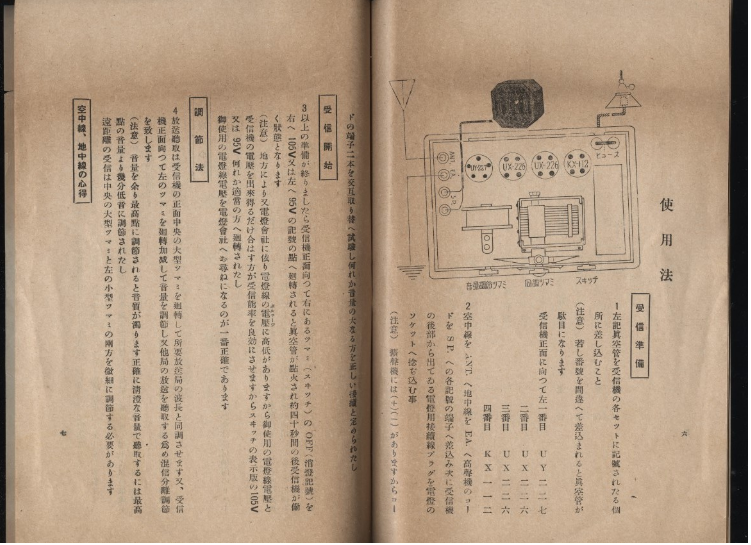 使用法
受信準備
1 左記眞空管を受信機の各セットに記號されたる個
所に差し込むこと
(注意) 若し番號を間違へて差込まれると眞空管が
駄目になります
受信機正面に向つて左一番目 UY二二七
二番目 UX二二六
三番目 UX二二六
四番目 KX一一二
2 空中線を へ地中線を EA.へ高聲機のコー
ドを S.P.への各記號の端子へ差込み次に受信機
の後部から出てゐる電燈用接續線プラグを電燈の
ソケットへ捻込む事
(注意) 高聲機には(+)(-)がありますからコー
ヒューズ
UY-227
UX-226
UX-226
KX-112
音量調節ツマミ
同調ツマミ
スヰッチ
六
ドの端子二本を交互取り替へ試聽し何れか音量の大なる方を正しい接續と定められたし
受信開始
3 以上の準備が終りましたら受信機正面向つて右にあるツマミ(スヰッチ)の OFF(消聲記號)を
右へ105V又は左へ95Vの記號の點へ廻轉されると眞空管が點火され約四十秒間の後受信機が働
く狀態となります
(注意) 地方により又電燈會社に依り電燈線の電壓に高低がありますから御使用の電燈線電壓と
受信機の電壓を出來得るだけ合はす方が受信能率を良効にさせますからスヰッチの表示版の105V
又は95V何れか適當の方へ廻轉されたし
御使用の電燈線電壓を電燈會社へお尋ねになるのが一番正確であります
調節法
4 放送聽取は受信機の正面中央の大型ツマミを廻轉して所要放送局の波長と同調させます又、受信
機正面向つて左のツマミを廻轉加減して音量を調節し又他局の放送を聽取する爲め混信分離調節
を致します
(注意) 音量を余り最高點に調節されると音質が濁ります正確に淸澄な音量で聽取するには最高
點の音量より幾分低音に調節されたし
遠距離の受信は中央の大型ツマミと左の小型ツマミの兩方を微細に調節する必要があります
空中線、地中線の心得
七